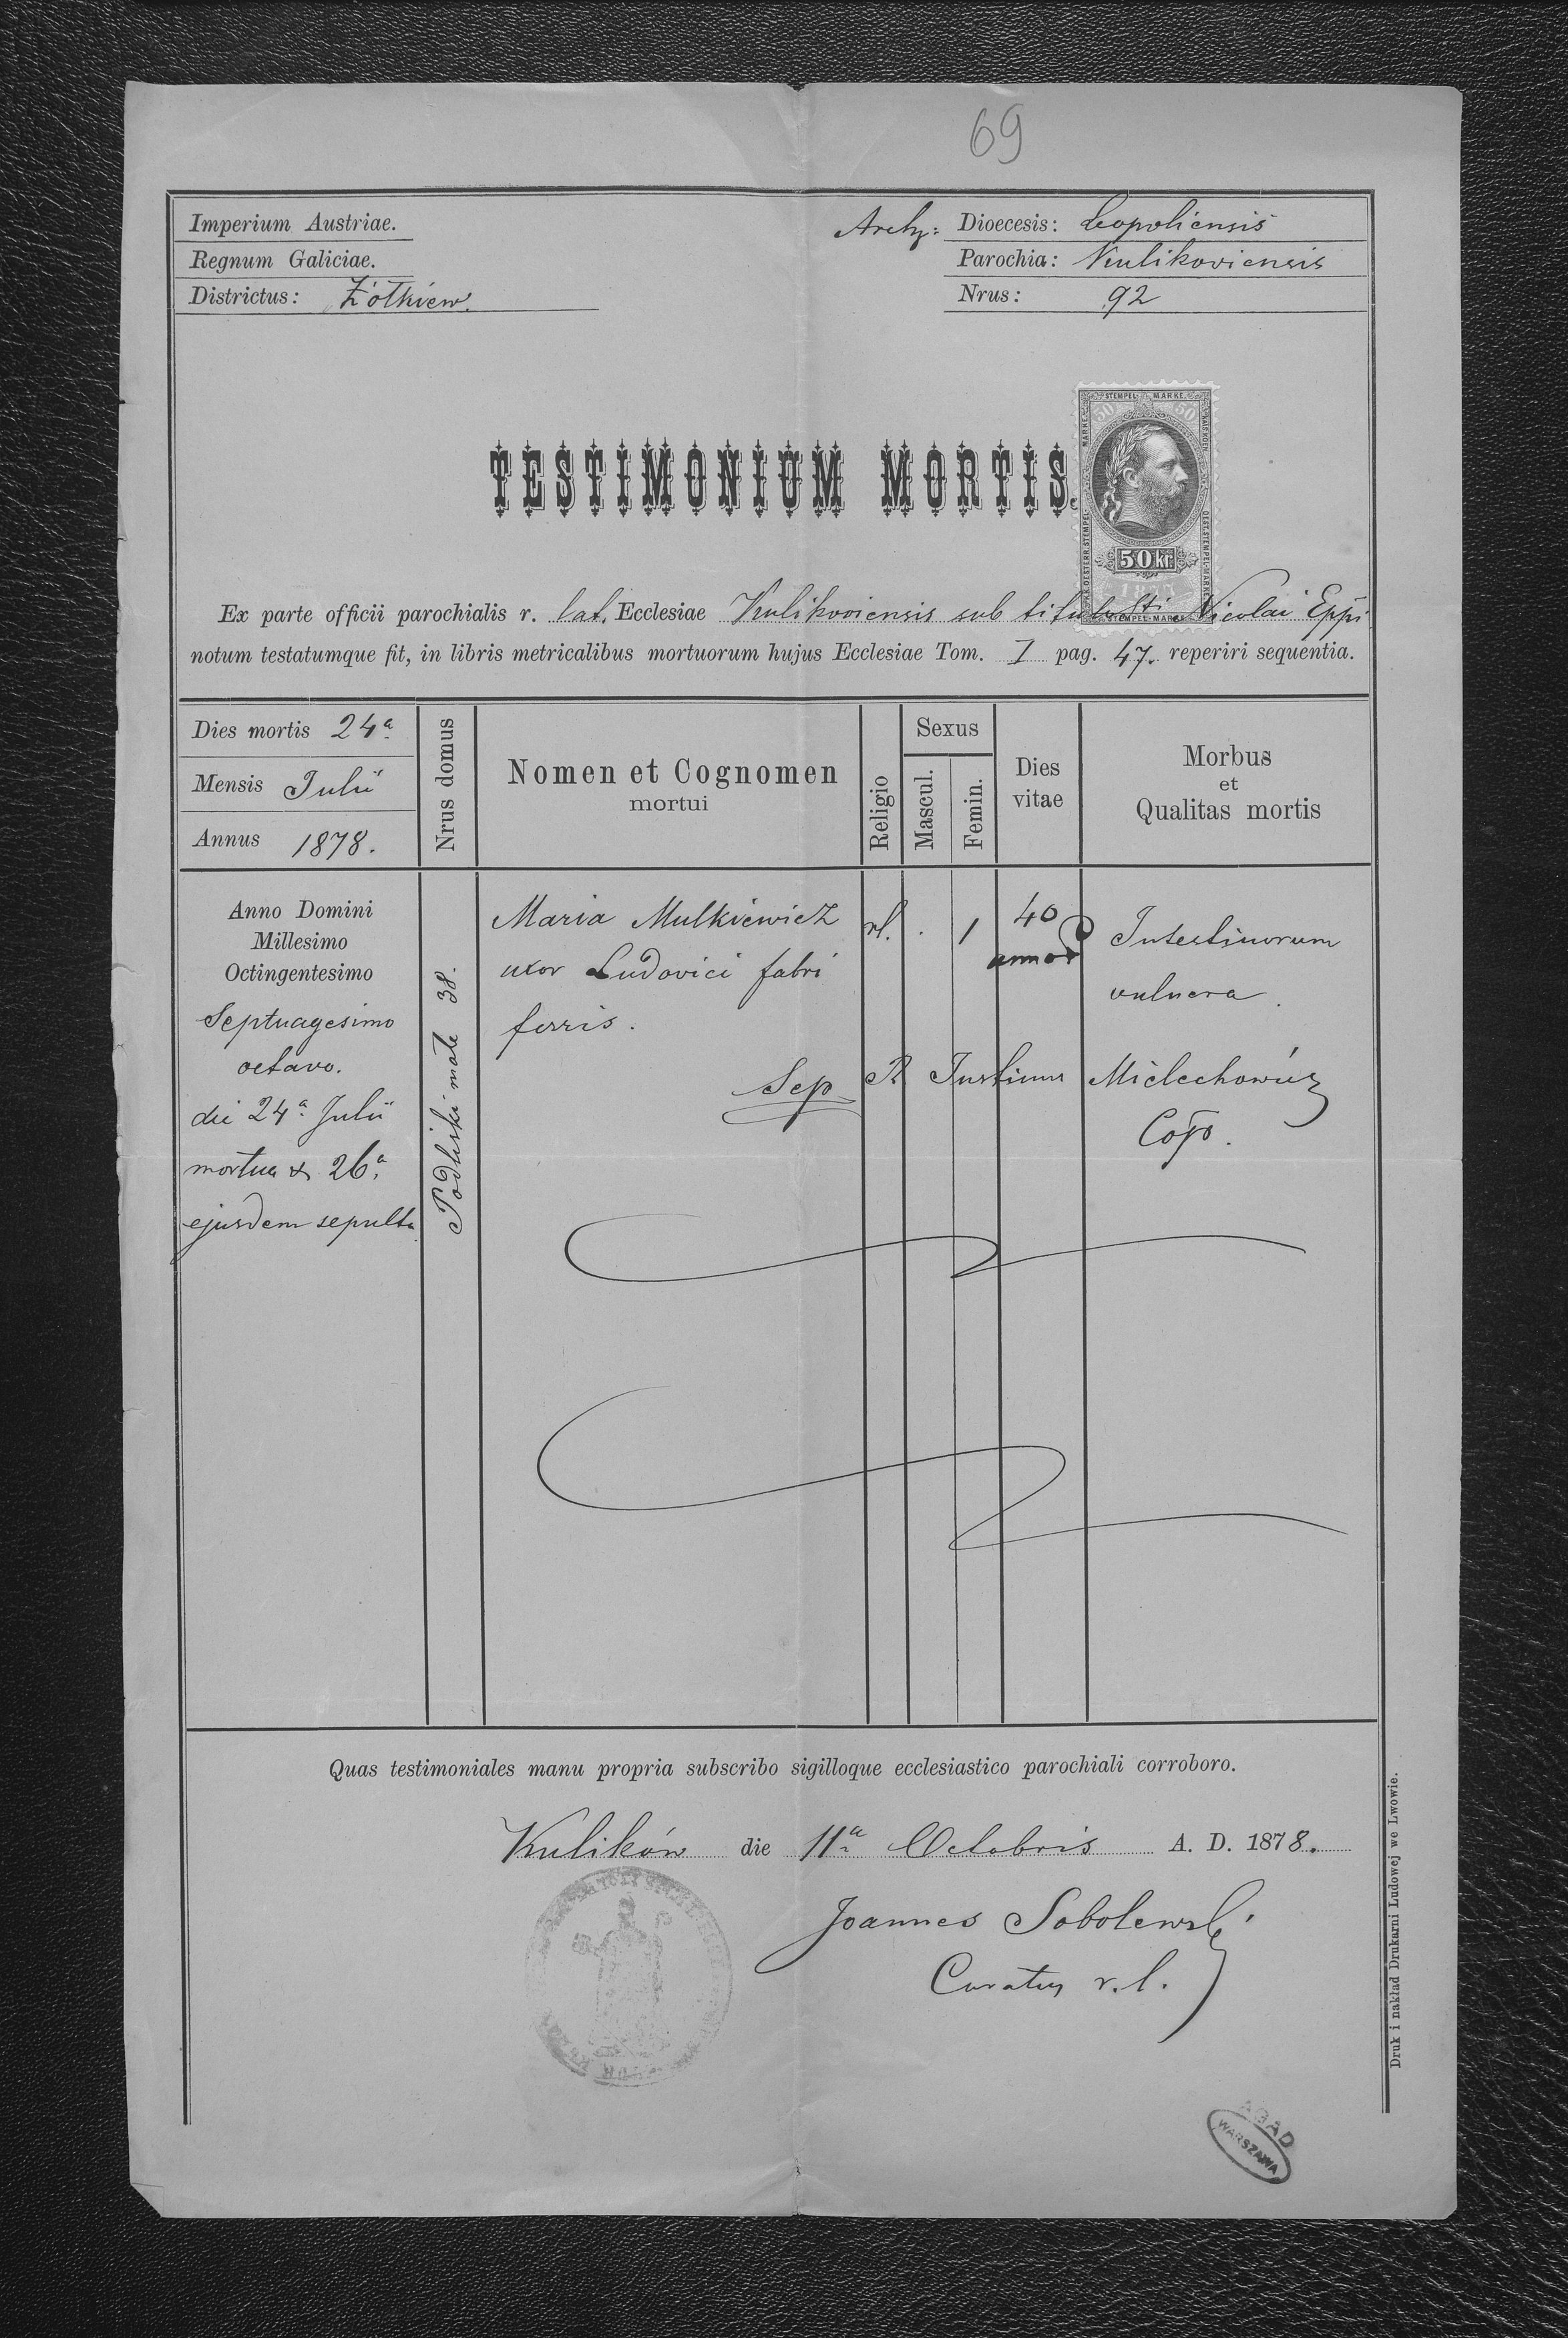 69
Imperium Austriae.
Regnum Galiciae.
Districtus: Żółkiew.
Archy: Dioecesis: Leopoliensis
Parochia: Kulikoviensis
Nrus: 92
STEMPEL MARKE
50 50
50 kr
TESTIMONIUM MORTIS.
Ex parte officii parochialis r. lat. Ecclesiae Kulikoviensis sub titulo Sti. Nicolai Eppi
notum testatumque fit, in libris metricalibus mortuorum hujus Ecclesiae Tom. I pag. 47. reperiri sequentia.
Dies mortis 24a
Mensis Julii
Annus 1878.
Nrus domus
Nomen et Cognomen
mortui
Religio
Sexus
Mascul.
Femin.
Dies
vitae
Morbus
et
Qualitas mortis
Anno Domini
Millesimo
Octingentesimo
Septuagesimo
octavo.
die 24a Julii
mortua & 26a
ejusdem sepulta
Podliski małe 38.
Maria Mulkiewicz
uxor Ludovici fabri
ferris.
rl.
.
1
40
annor
Intestinorum
vulnera.
Sep R Justinus Mielechowicz
Coop.
Quas testimoniales manu propria subscribo sigilloque ecclesiastico parochiali corroboro.
Kulików die 11a Octobris A. D. 1878.
Joannes Sobolewski
Curatus r. l.
Druk i nakład Drukarni Ludowej we Lwowie.
AGAD
WARSZAWA